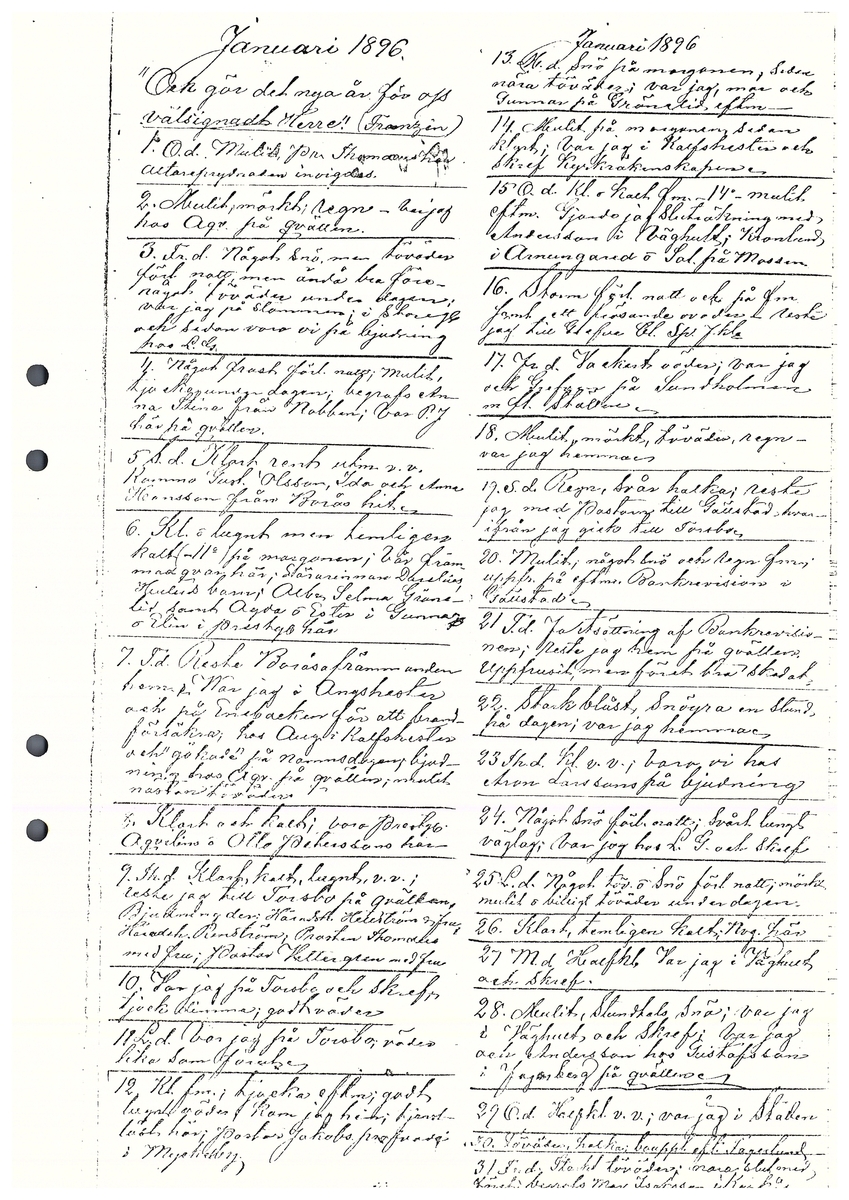 Januari 1896.
"Och gör det nya år för oss
välsignadt Herre!" (Franzén)
1. O.d. Mulit, Pr. Thomanders
altareprydnaden invigdes.
2. Mulit, mörkt, regn – var jag
hos Agv. på qvällen.
3. Fr.d. Något snö, men töväder
förl. natt, men ändå bra före –
något töväder under dagen;
var jag på Stommen, i
och sedan voro vi på bjudning
hos L. G.
4. Något frost förl. natt; mulit,
under dagen; begrofs An-
na Stina från Nabben; var P. J
här på qvällen.
5. S.d. Klart rent v.v.
Kommo Gust. Olsson, Ida och Anna
Hansson från Borås hit.
6. Kl. o lugnt men temligen
kallt -11° på morgonen; var främ-
mad qvar här; Lärarinnan
barn; Alba, Selma Gröne-
lid samt Agda o Ester i
o Elin i prestg. här
7. T.d. Reste Boråsafrämmanden
hem. Var jag i Ängshester
och på Enebacken för att brand-
försäkra; hos Aug. i Kalfshester
och "gökade" på namnsdagen; bjud-
ning hos Agv. på qvällen; mulit
nästan töväder
8. Klart och kallt; voro Prestg.
Agvelins o Otto Peterssons här
9. Th.d. Klart, kallt, lugnt, v.v.;
reste jag till Torsbo på qvällen,
Bjudning der; Häradsh. Hellström m fru,
Häradsh. Prosten Thomander
med fru; Pastor Vettergren med fru
10. Var jag på Torsbo och skref,
tjock dimma; godt väder
11. L.d. Var jag på Torsbo, väder
lika som förut
12. Kl. fm.; tjocka eftm; godt
lugnt väder; kom jag hem; tjenst-
löst här; Pastor Jakobs.
i
Januari 1896
13. M.d. Snö på morgonen, sedan
nära töväder; var jag, mor och
Gunnar på Grönelid eftm –
14. Mulit på morgonen, sedan
klart; var jag i Kalfshester och
skref Kyrkräkenskaperne
15 O.d. Kl. o kallt fm. -14° – mulit
eftm. Gjorde jag Sluträkning med
Andersson i Väghult; Kronlund
i Arnungared o Sal. på Mossen
16. Storm förl. natt och på fm
samt ett rysande oväder – reste
jag till
17. Fr.d. Vackert väder; var jag
och på Sundholmen
m fl. ställen
18. Mulit, mörkt, töväder, regn –
var jag hemma
19. S.d. Regn, svår halka; reste
jag med Pastorn till Gällstad, hvar-
ifrån jag gick till Torsbo
20. Mulit; något snö och regn fm;
uppfr. på eftm. Bankrevision i
Gällstad
21 T.d. Fortsättning af Bankrevisio-
nen; reste jag hem på qvällen.
Uppfrusit, men föret bra skadat.
22. Stark blåst, snöyra en stund
på dagen; var jag hemma
23 Th.d. Kl. v.v.; voro vi hos
Aron Larssons på bjudning
24. Något snö förl. natt; svårt tungt
väglag; var jag hos L. G. och skref
25 L.d. Något töv. o snö förl. natt; mörkt
mulit o blidigt töväder under dagen.
26. Klart, temligen kallt; här
27 M.d. Halfkl. Var jag i Väghult
och skref.
28. Mulit, stundtals snö; var jag
i Väghult och skref; var jag
och Andersson hos Gustafsson
i på qvällen
29 O.d. Halfkl. v.v.; var jag i Ståtten
30. Töväder, halka;
31 Fr.d. Starkt töväder; nära